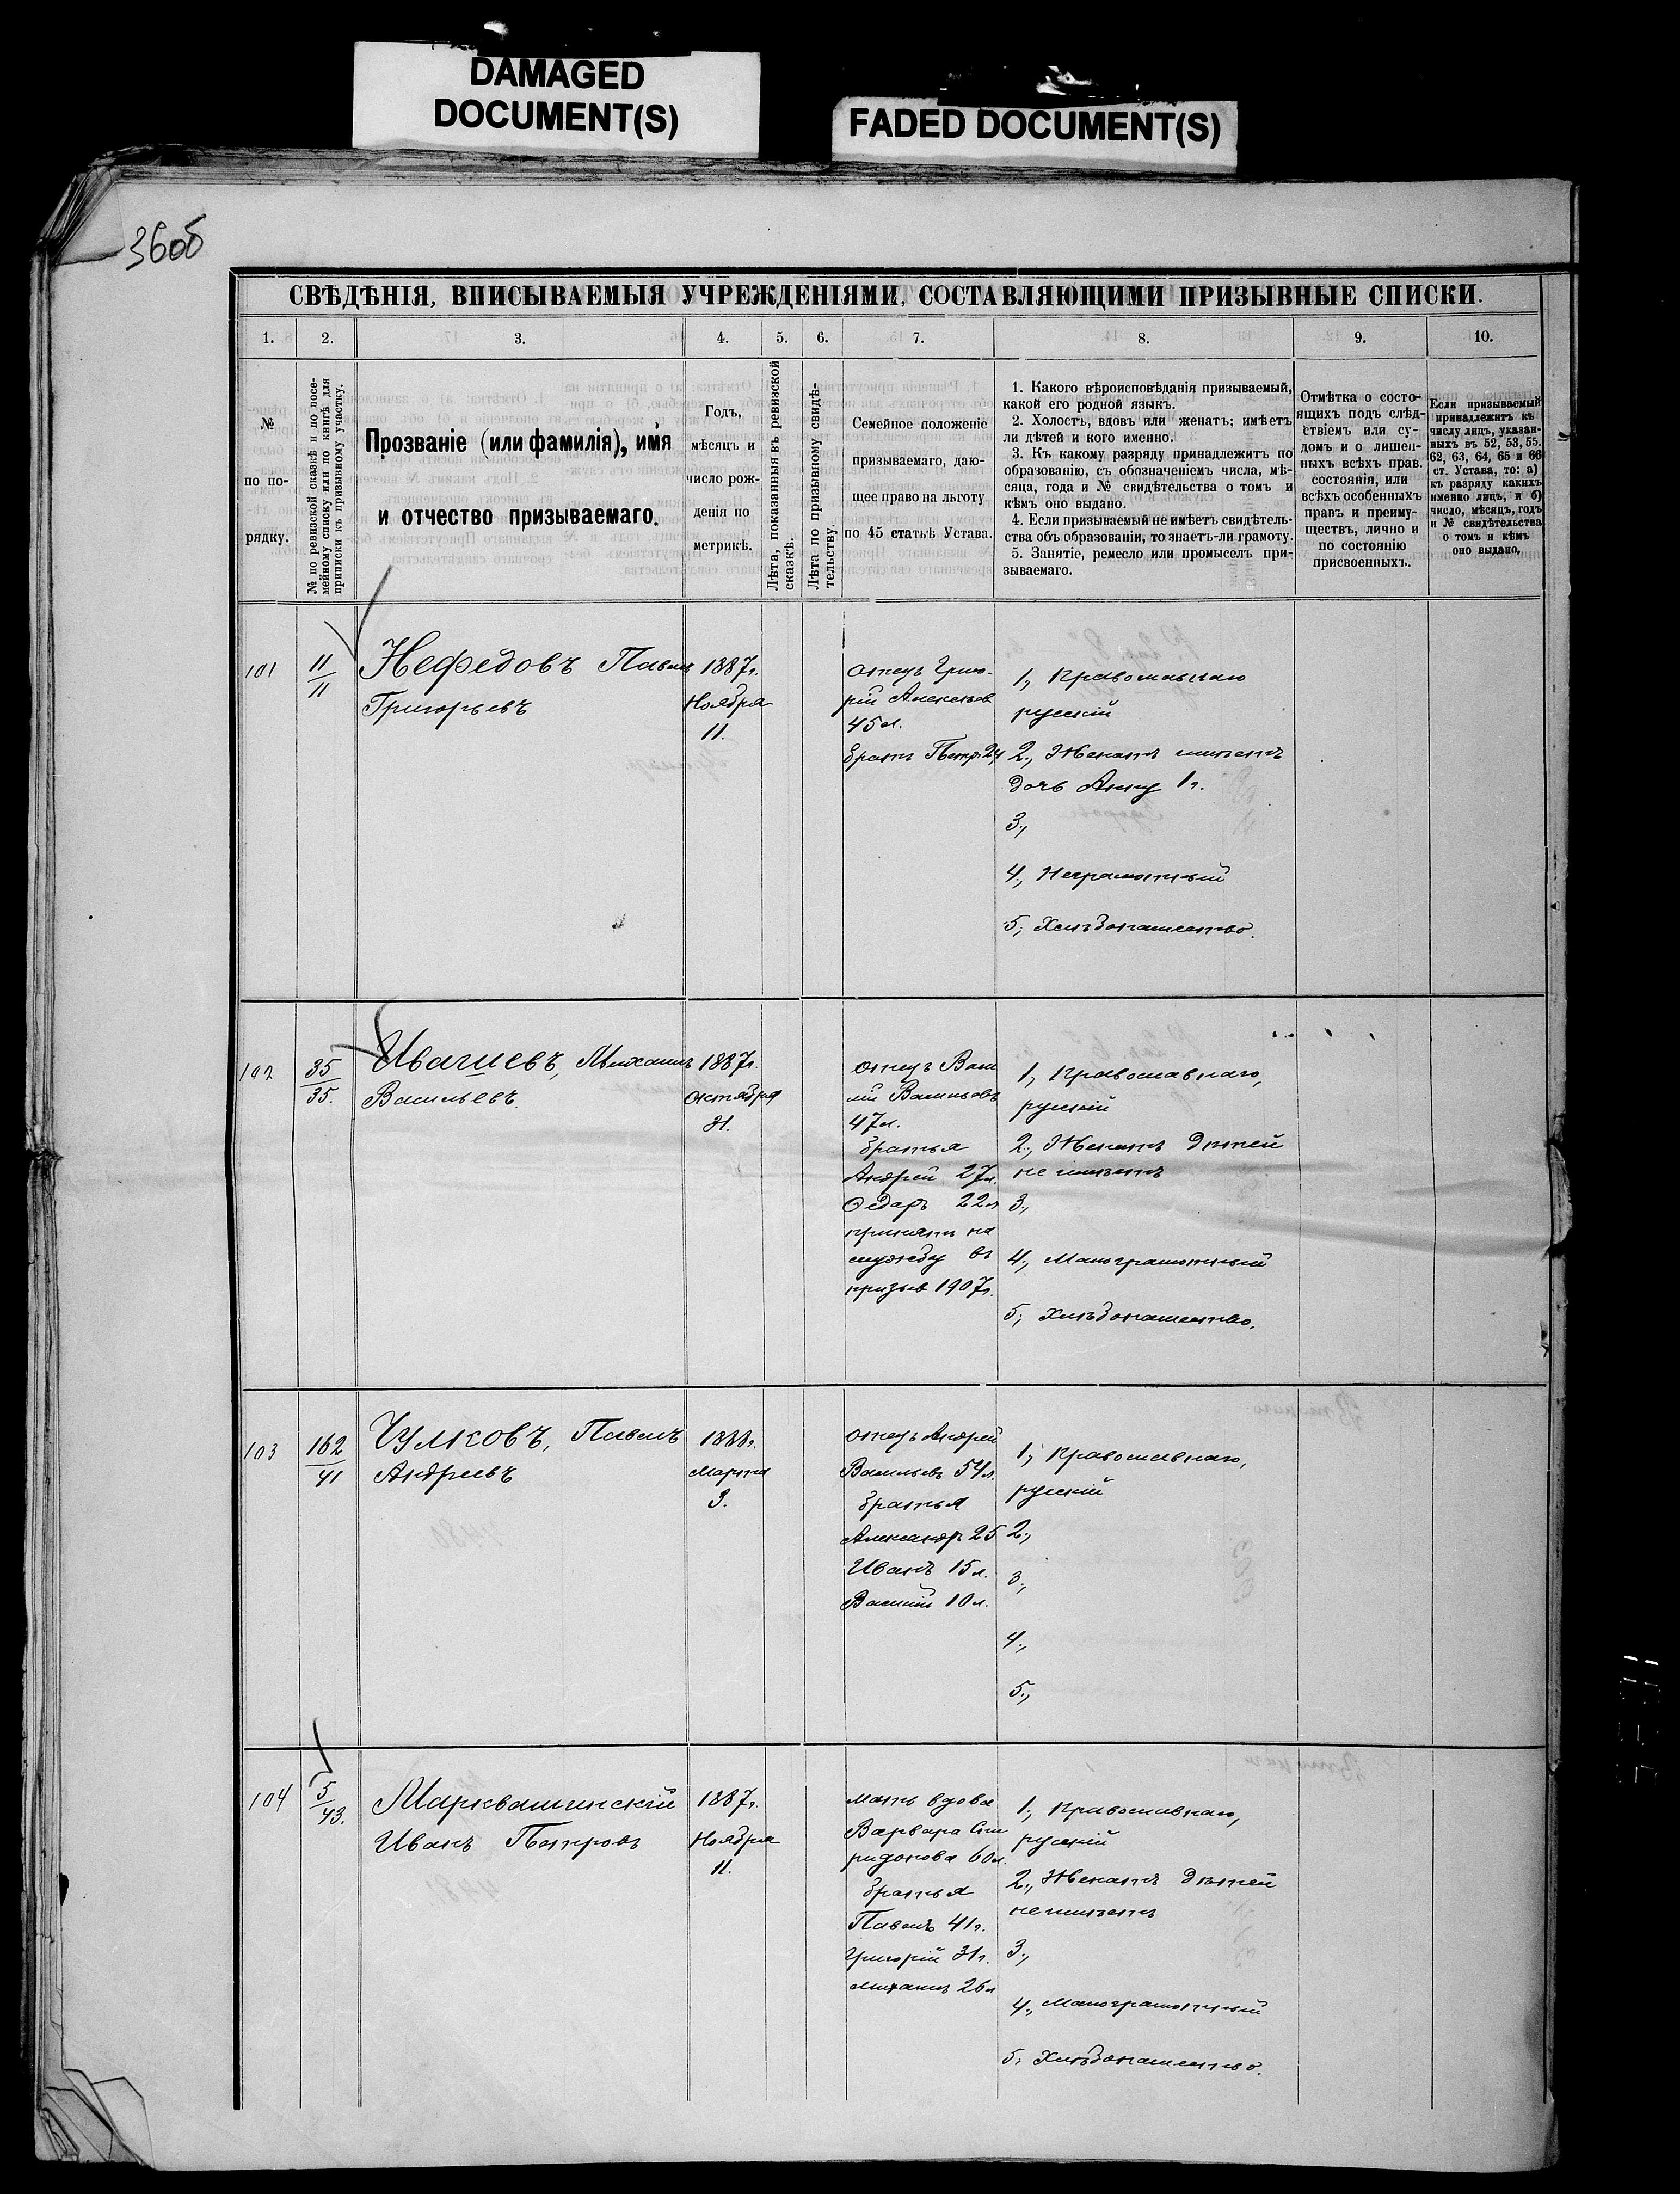 DAMAGED
DOCUMENT(S)
FADED DOCUMENT(S)
36об
СВѢДѢНІЯ, ВПИСЫВАЕМЫЯ УЧРЕЖДЕНІЯМИ, СОСТАВЛЯЮЩИМИ ПРИЗЫВНЫЕ СПИСКИ.
1. 2. 3. 4. 5. 6. 7. 8. 9. 10.
№
по по-
рядку.
№ по ревизской сказкѣ и по посе-
мейному списку или по книгѣ для
приписки къ призывному участку.
Прозваніе (или фамилія), имя
и отчество призываемаго.
Годъ,
мѣсяцъ и
число рож-
денія по
метрикѣ.
Лѣта, показанныя въ ревизской
сказкѣ.
Лѣта по призывному свидѣ-
тельству.
Семейное положеніе
призываемаго, даю-
щее право на льготу
по 45 статьѣ Устава.
1. Какого вѣроисповѣданія призываемый,
какой его родной языкъ.
2. Холостъ, вдовъ или женатъ; имѣетъ
ли дѣтей и кого именно.
3. Къ какому разряду принадлежитъ по
образованію, съ обозначеніемъ числа, мѣ-
сяца, года и № свидѣтельства о томъ и
кѣмъ оно выдано.
4. Если призываемый не имѣетъ свидѣтель-
ства объ образованіи, то знаетъ-ли грамоту.
5. Занятіе, ремесло или промыселъ при-
зываемаго.
Отмѣтка о состо-
ящихъ подъ слѣд-
ствіемъ или су-
домъ и о лишен-
ныхъ всѣхъ прав.
состоянія, или
всѣхъ особенныхъ
правъ и преиму-
ществъ, лично и
по состоянію
присвоенныхъ.
Если призываемый
принадлежитъ къ
числу лицъ, указан-
ныхъ въ 52, 53, 55.
62, 63, 64, 65 и 66
ст. Устава, то: а)
къ разряду какихъ
именно лицъ, и б)
число, мѣсяцъ, годъ
и № свидѣтельства
о томъ и кѣмъ
оно выдано.
101
11
11
Нефедовъ Павелъ
Григорьевъ
1887г.
Ноября
11.
отецъ Григо-
рій Алексѣев
45л.
братъ Петръ 24
1., Православнаго
русскій
2., Женатъ имѣетъ
дочь Анну 1г.
3.,
4., Неграмотный
5., Хлѣбопашество.
102
35
35.
Ивачиевъ, Михаилъ
Васильевъ.
1887г.
Октября
31.
отецъ Васи
лій Васильевъ
47л.
братья
Андрей 27л.
Федоръ 22л
принятъ на
службу въ
призыв 1907г.
1., Православнаго,
русскій
2., Женатъ дѣтей
не имѣетъ
3.,
4., Малограмотный
5., Хлѣбопашество.
103
162
41
Чулковъ, Павелъ
Андреевъ
1888г.
Марта
3.
отецъ Андрей
Васильевъ 54л.
братья
Александръ 25
Иванъ 15л.
Василій 10л.
1., Православнаго,
русскій
2.,
3.,
4.,
5.,
104
5
43.
Марквашинскій
Иванъ Петровъ
1887г.
Ноября
11.
мать вдова
Варвара Спи
ридонова 60л.
братья
Павелъ 41г.
Григорій 31г.
Михаилъ 26л
1., Православнаго,
русскій
2., Женатъ дѣтей
не имѣетъ
3.,
4., Малограмотный
5., Хлѣбопашество.